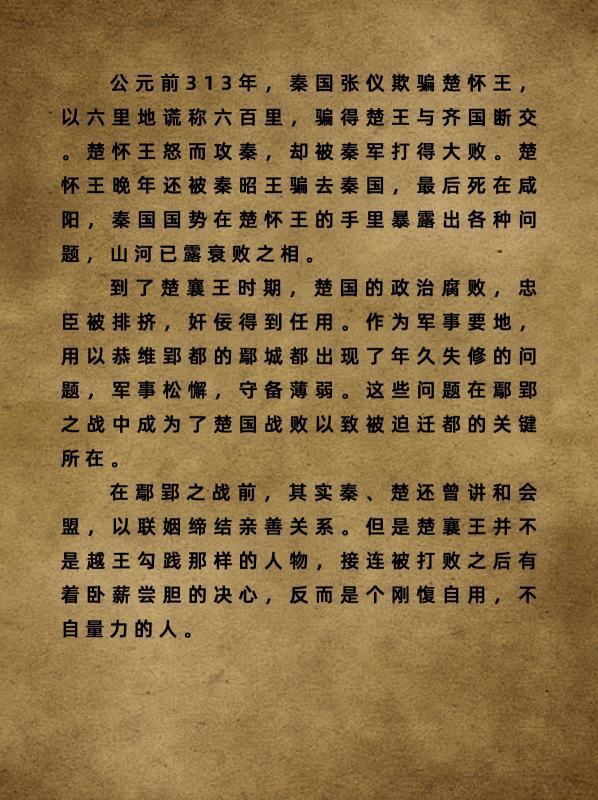 公元前313年，秦国张仪欺骗楚怀王，
以六里地谎称六百里，骗得楚王与齐国断交
。楚怀王怒而攻秦，却被秦军打得大败。楚
怀王晚年还被秦昭王骗去秦国，最后死在咸
阳，秦国国势在楚怀王的手里暴露出各种问
题，山河已露衰败之相。
到了楚襄王时期，楚国的政治腐败，忠
臣被排挤，奸佞得到任用。作为军事要地，
用以恭维郢都的鄢城都出现了年久失修的问
题，军事松懈，守备薄弱。这些问题在鄢郢
之战中成为了楚国战败以致被迫迁都的关键
所在。
在鄢郢之战前，其实秦、楚还曾讲和会
盟，以联姻缔结亲善关系。但是楚襄王并不
是越王勾践那样的人物，接连被打败之后有
着卧薪尝胆的决心，反而是个刚愎自用，不
自量力的人。